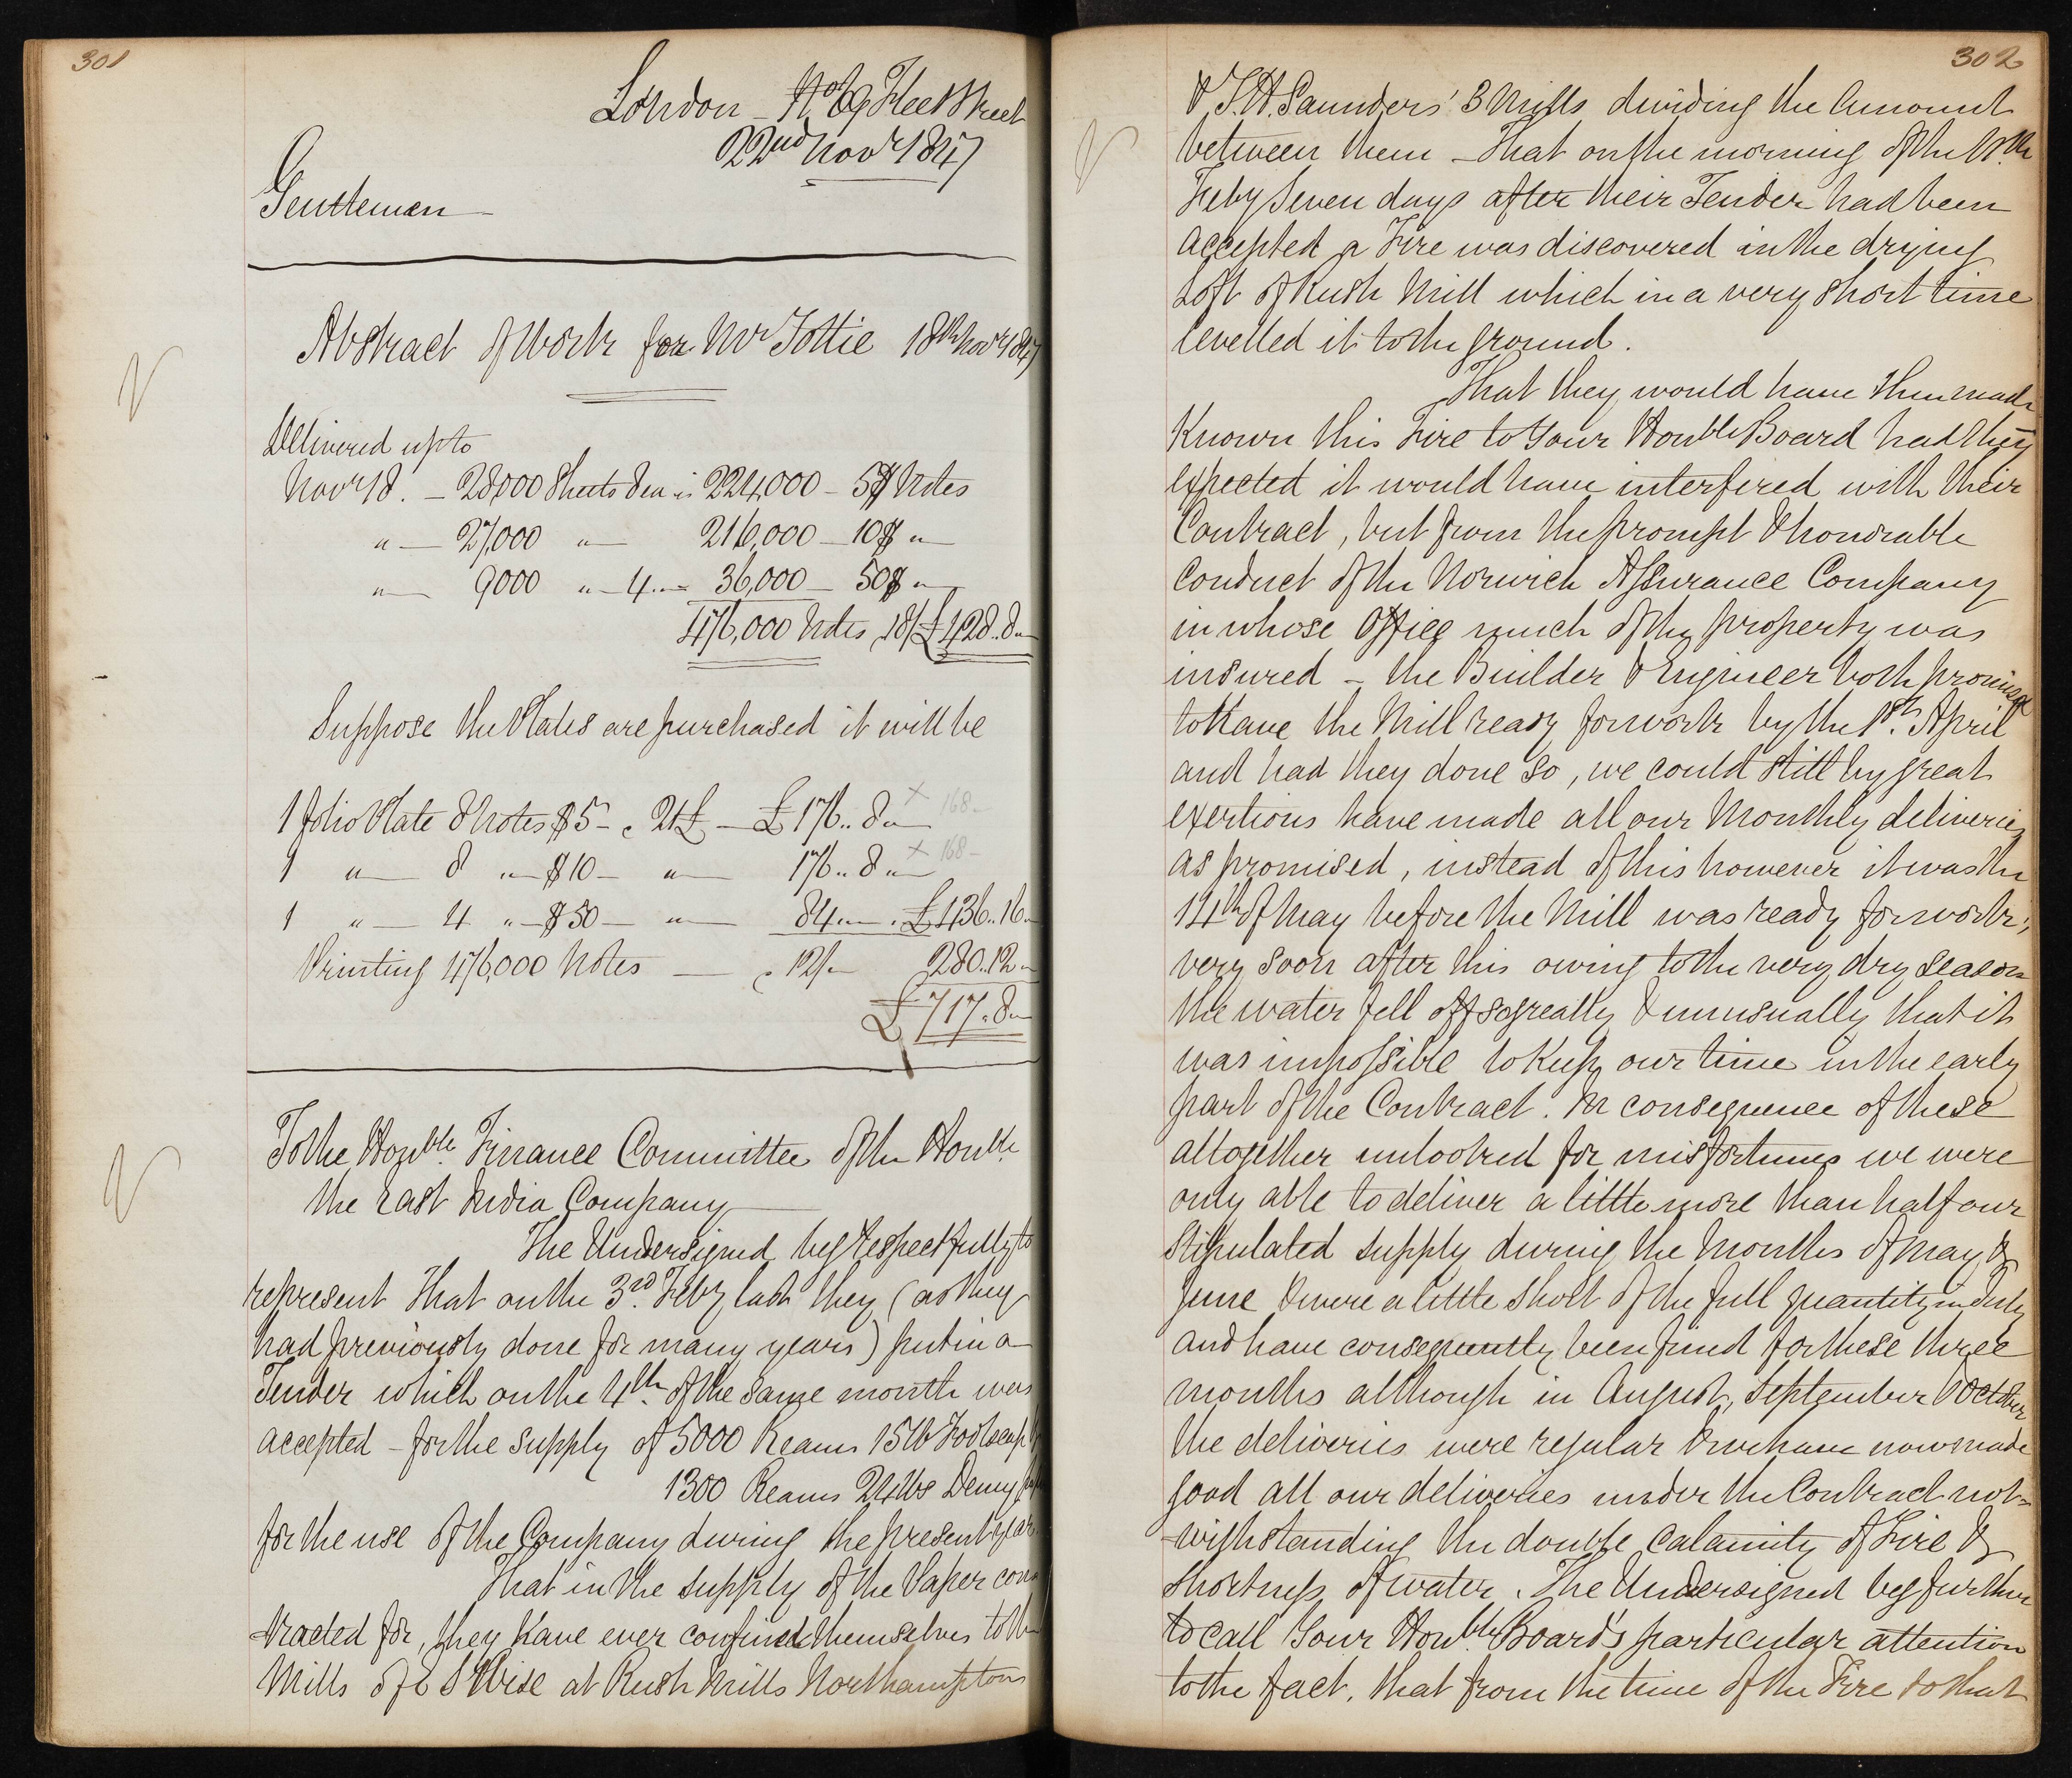 301
London - No 69 Fleet Street
22nd Novr 1847
Gentlemen
Abstract of Work for Mr Tottie 18th Novr 1847
Delivered up to
Novr 18. - 28,000 Sheets 8 ea is 224,000 - 5$ Notes
" - 27,000 " - 216,000 - 10$ "
" 9000 " - 4 " - 36,000 - 50$ "
476,000 Notes 18/ £428..8 "
Suppose the Plates are purchased it will be
1 folio Plate 8 Notes $5 - @ 21£ - £176..8 " x 168 -
1 " 8 " - $10 - " 176..8 " x 168 -
1 " - 4 " - $50 - " 84 " - " £436..16 "
Printing 476,000 Notes - @ 12/- 280.12 "
£717.8 "
To the Honble. Finance Committee of the Honble
the East India Company
The Undersigned beg respectfully to
represent That on the 3rd. Feby last they (as they
had previously done for many years) put in a
Tender which on the 4th. of the same month was
accepted - for the supply of 5000 Reams 15lb Foolscap
1300 Reams 24lbs Demy
for the use of the Company during the present year
That in the supply of the Paper con
tracted for, they have ever confined themselves to the
Mills of E S Wise at Rush Mills Northampton
302
& T. H. Saunders' 3 Mills dividing the Amount
between them - That on the morning of the
Feby Seven days after their Tender had been
accepted a Fire was discovered in the drying
Loft of Rush Mill which in a very short time
levelled it to the ground.
That they would have then made
Known this Fire to Your Honble Board had they
expected it would have interfired with their
Contract, but from the prompt & honorable
conduct of the Norwich Assurance Company
in whose Office much of the property was
insured - the Builder & Engineer both promised
to have the Mill ready for work by the 18th. April
and had they done so, we could still by great
exertions have made all our Monthly deliveries
as promised, instead of this however it was the
14th of May before the Mill was ready for work;
very soon after this owing to the very dry season
the water fell off so greatly & unusually that it
was impossible to Keep our time in the early
part of the Contract. In consequence of these
altogether unlooked for misfortunes we were
only able to deliver a little more than half our
Stipulated supply during the Months of May &
June & were a little short of the full quantity in July
and have consequently been fined for these three
months although in August, September & October
the deliveries were regular & we have now made
good all our deliveries under the Contract not-
-withstanding the double calamity of Fire &
Shortness of water. The Undersigned beg further
to call Your Honble. Board's particular attention
to the fact, that from the time of the Fire to that